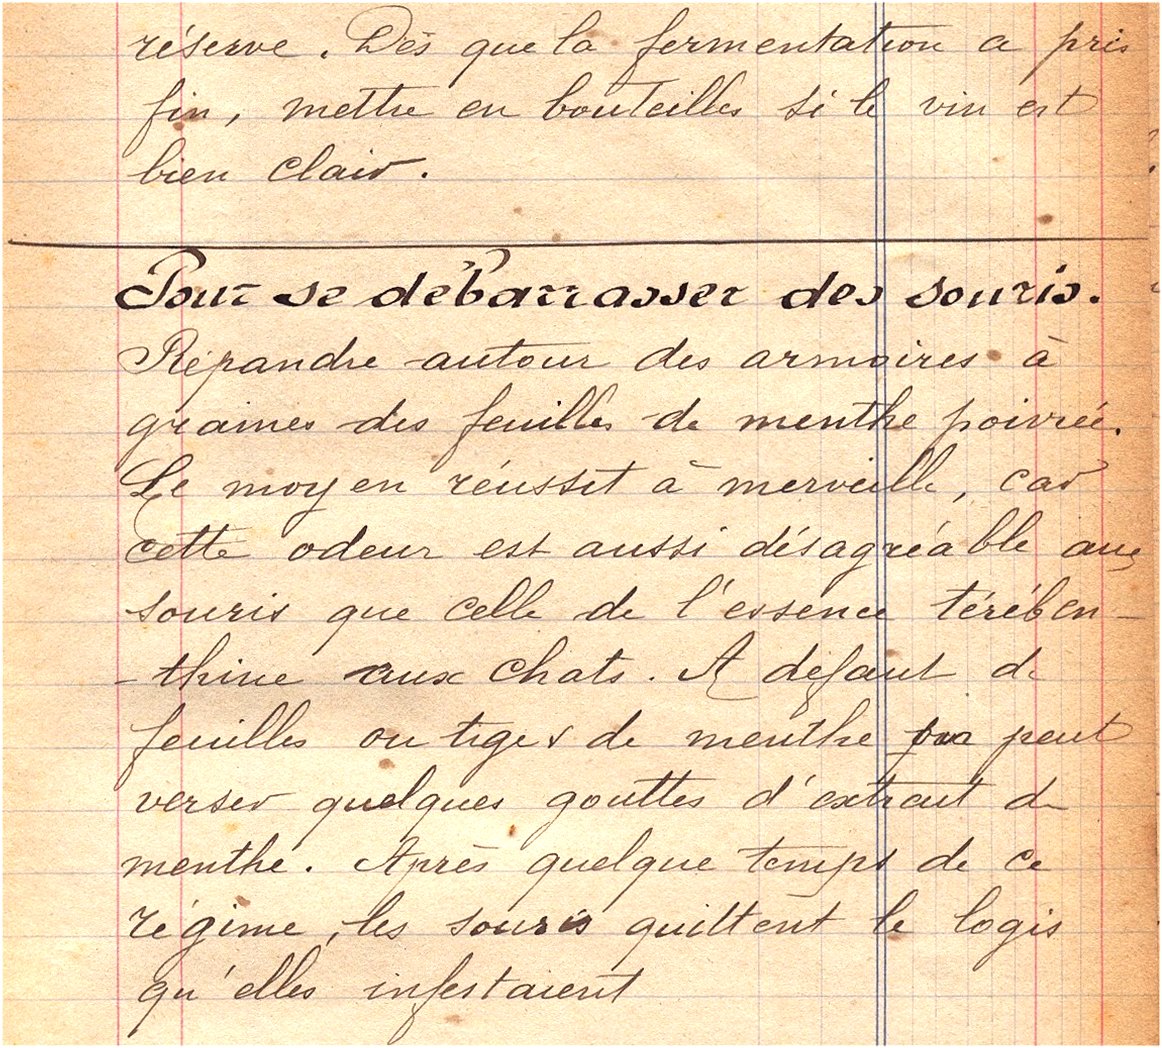 réserve. Dès que la fermentation a pris
fin, mettre en bouteilles si le vin est
bien clair.
Pour se débarrasser des souris.
Répandre autour des armoires à
graines des feuilles de menthe poivrée.
Le moyen réussit à merveille, car
cette odeur est aussi désagréable aux
souris que celle de l'essence térében-
-thine aux chats. A defaut de
feuilles ou tiges de menthe peut
verser quelques gouttes d'extrait de
menthe. Après quelque temps de ce
régime, les souris quittent le logis
qu'elles infestaient